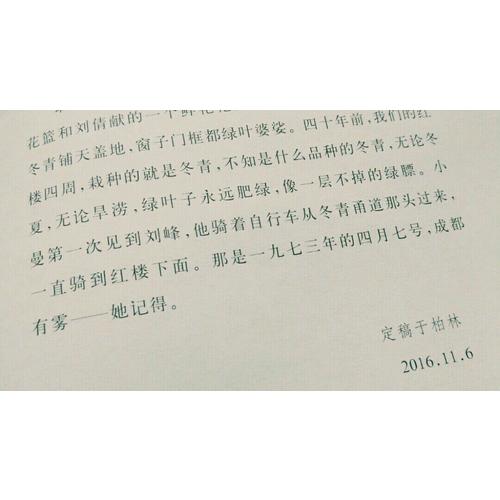 花篮和刘倩献的一个鲜花花
冬青铺天盖地，窗子门框都绿叶婆娑。四十年前，我们的红
楼四周，栽种的就是冬青，不知是什么品种的冬青，无论冬
夏，无论旱涝，绿叶子永远肥绿，像一层不掉的绿膘。小
曼第一次见到刘峰，他骑着自行车从冬青甬道那头过来，
一直骑到红楼下面。那是一九七三年的四月七号，成都
有雾——她记得。
定稿于柏林
2016.11.6